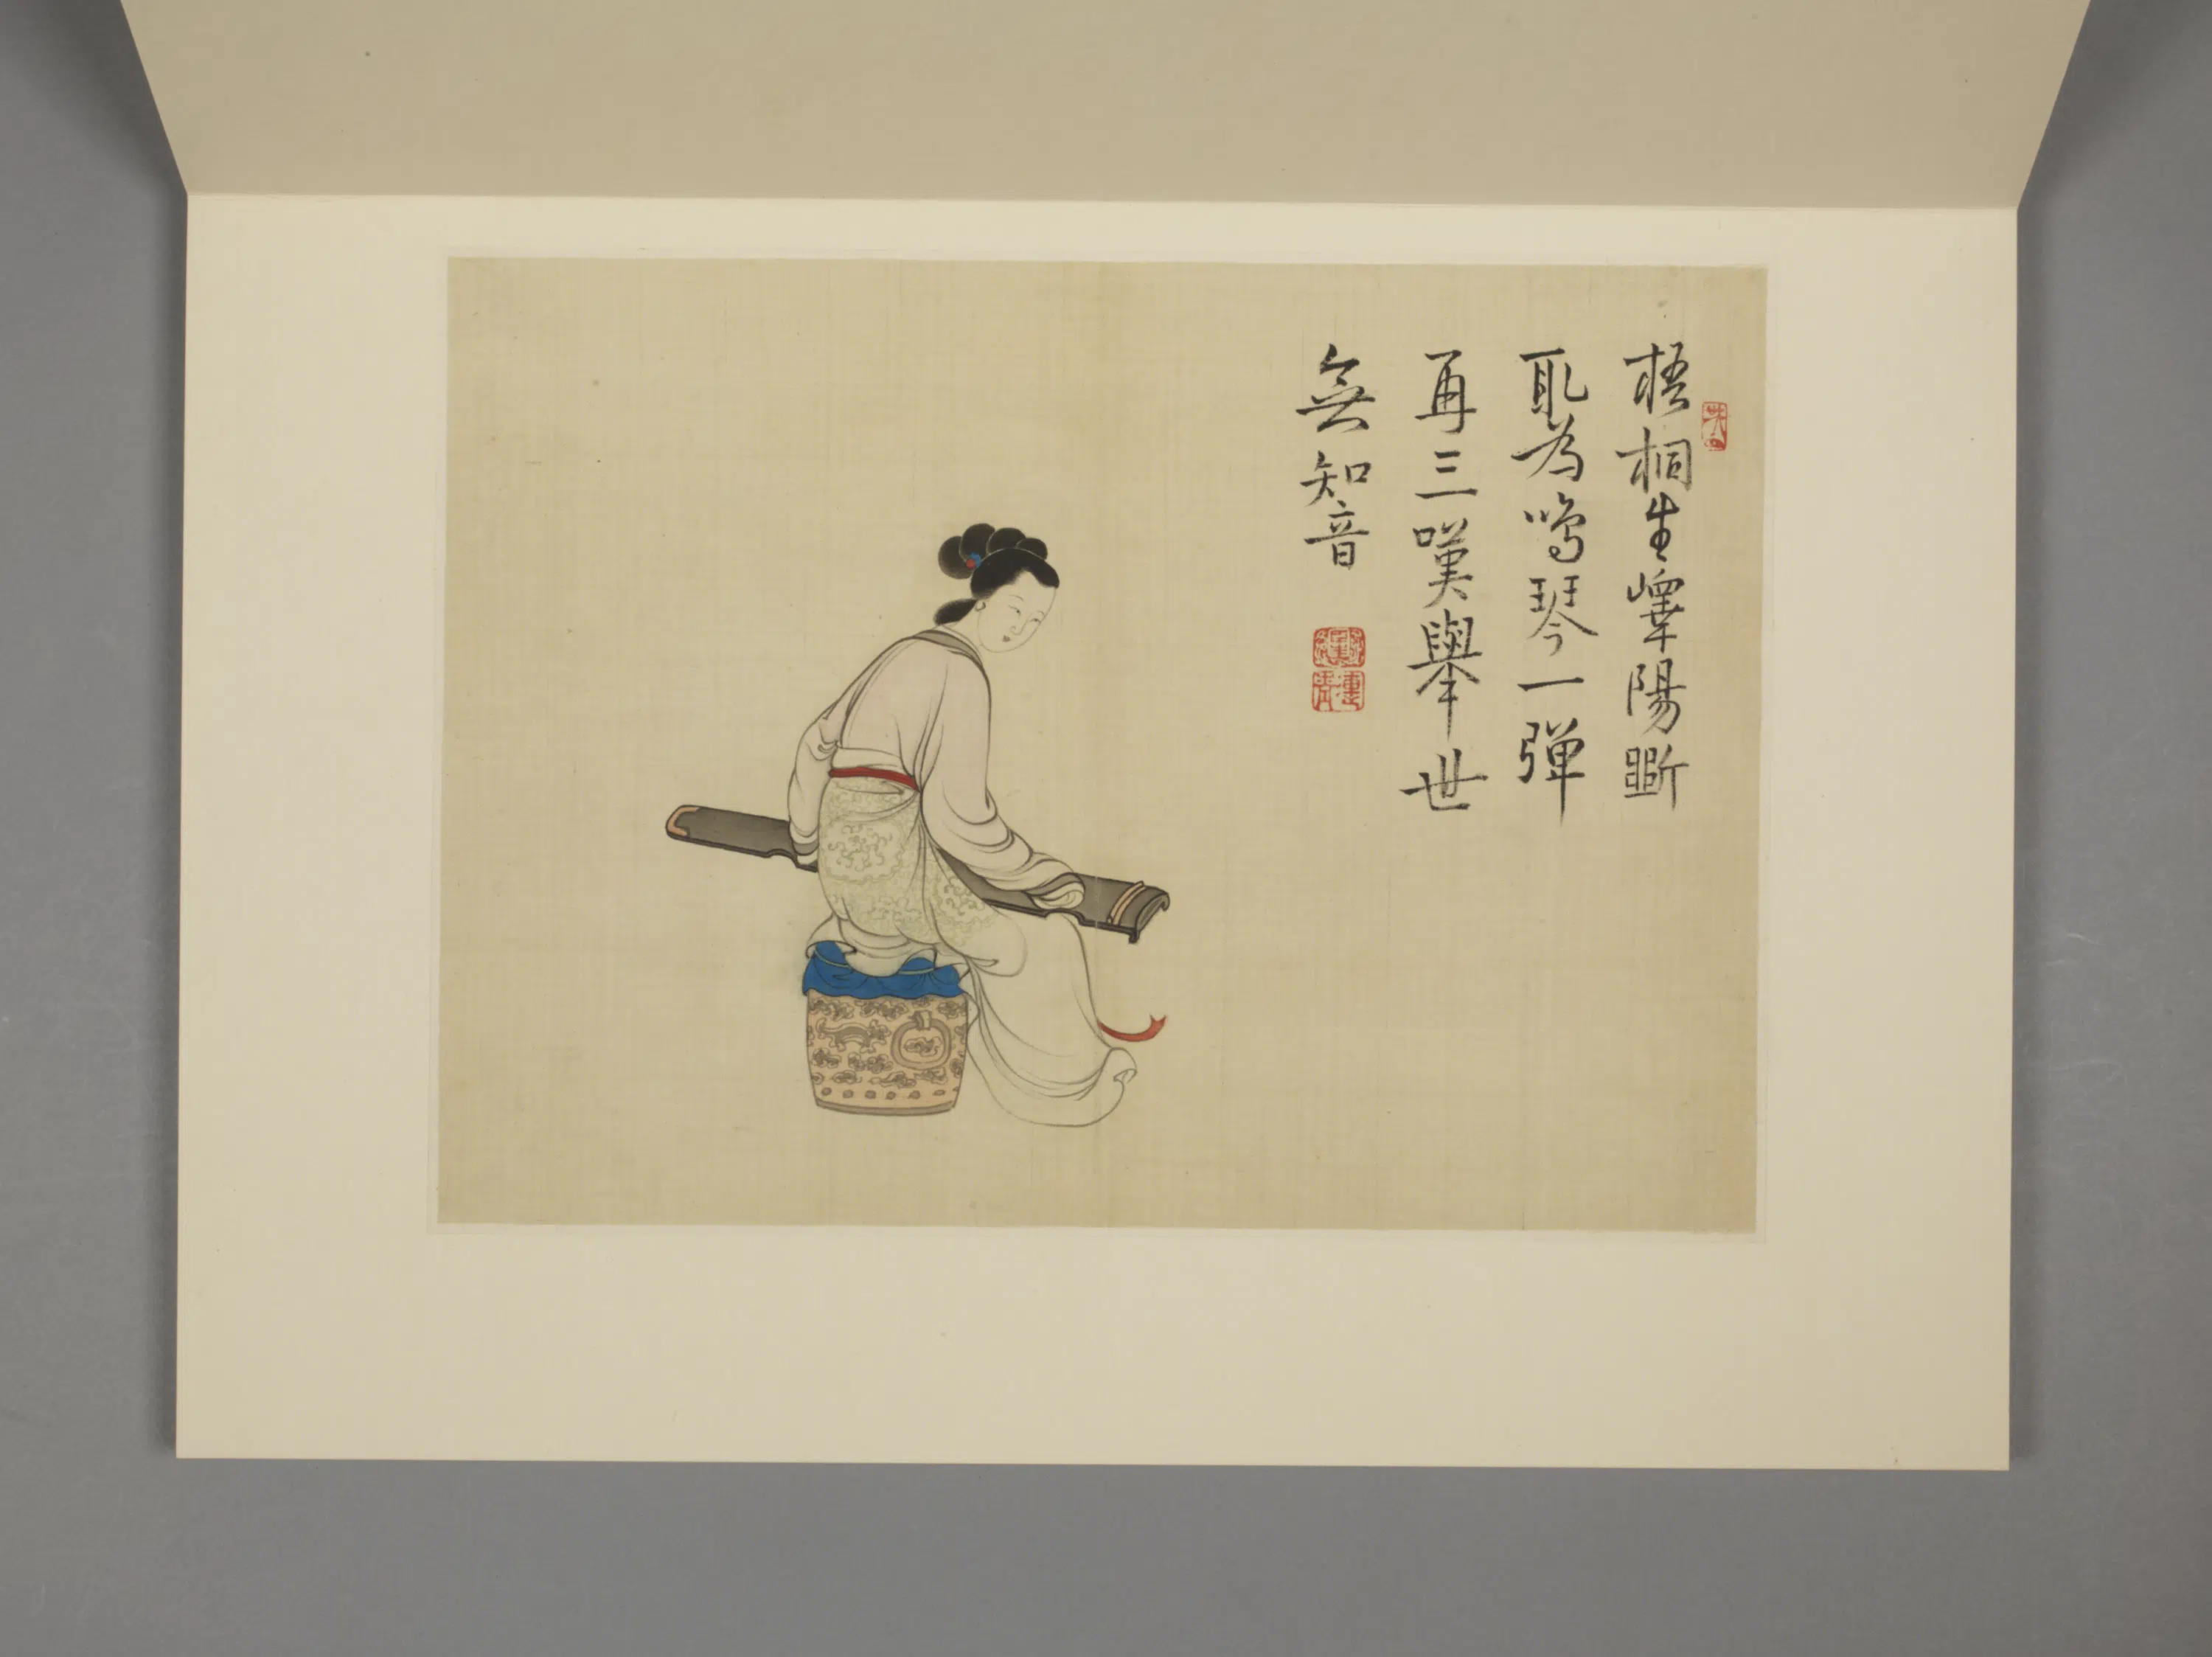 梧桐生嶧陽斲
取為鳴琴一弹
再三嘆舉世
無知音